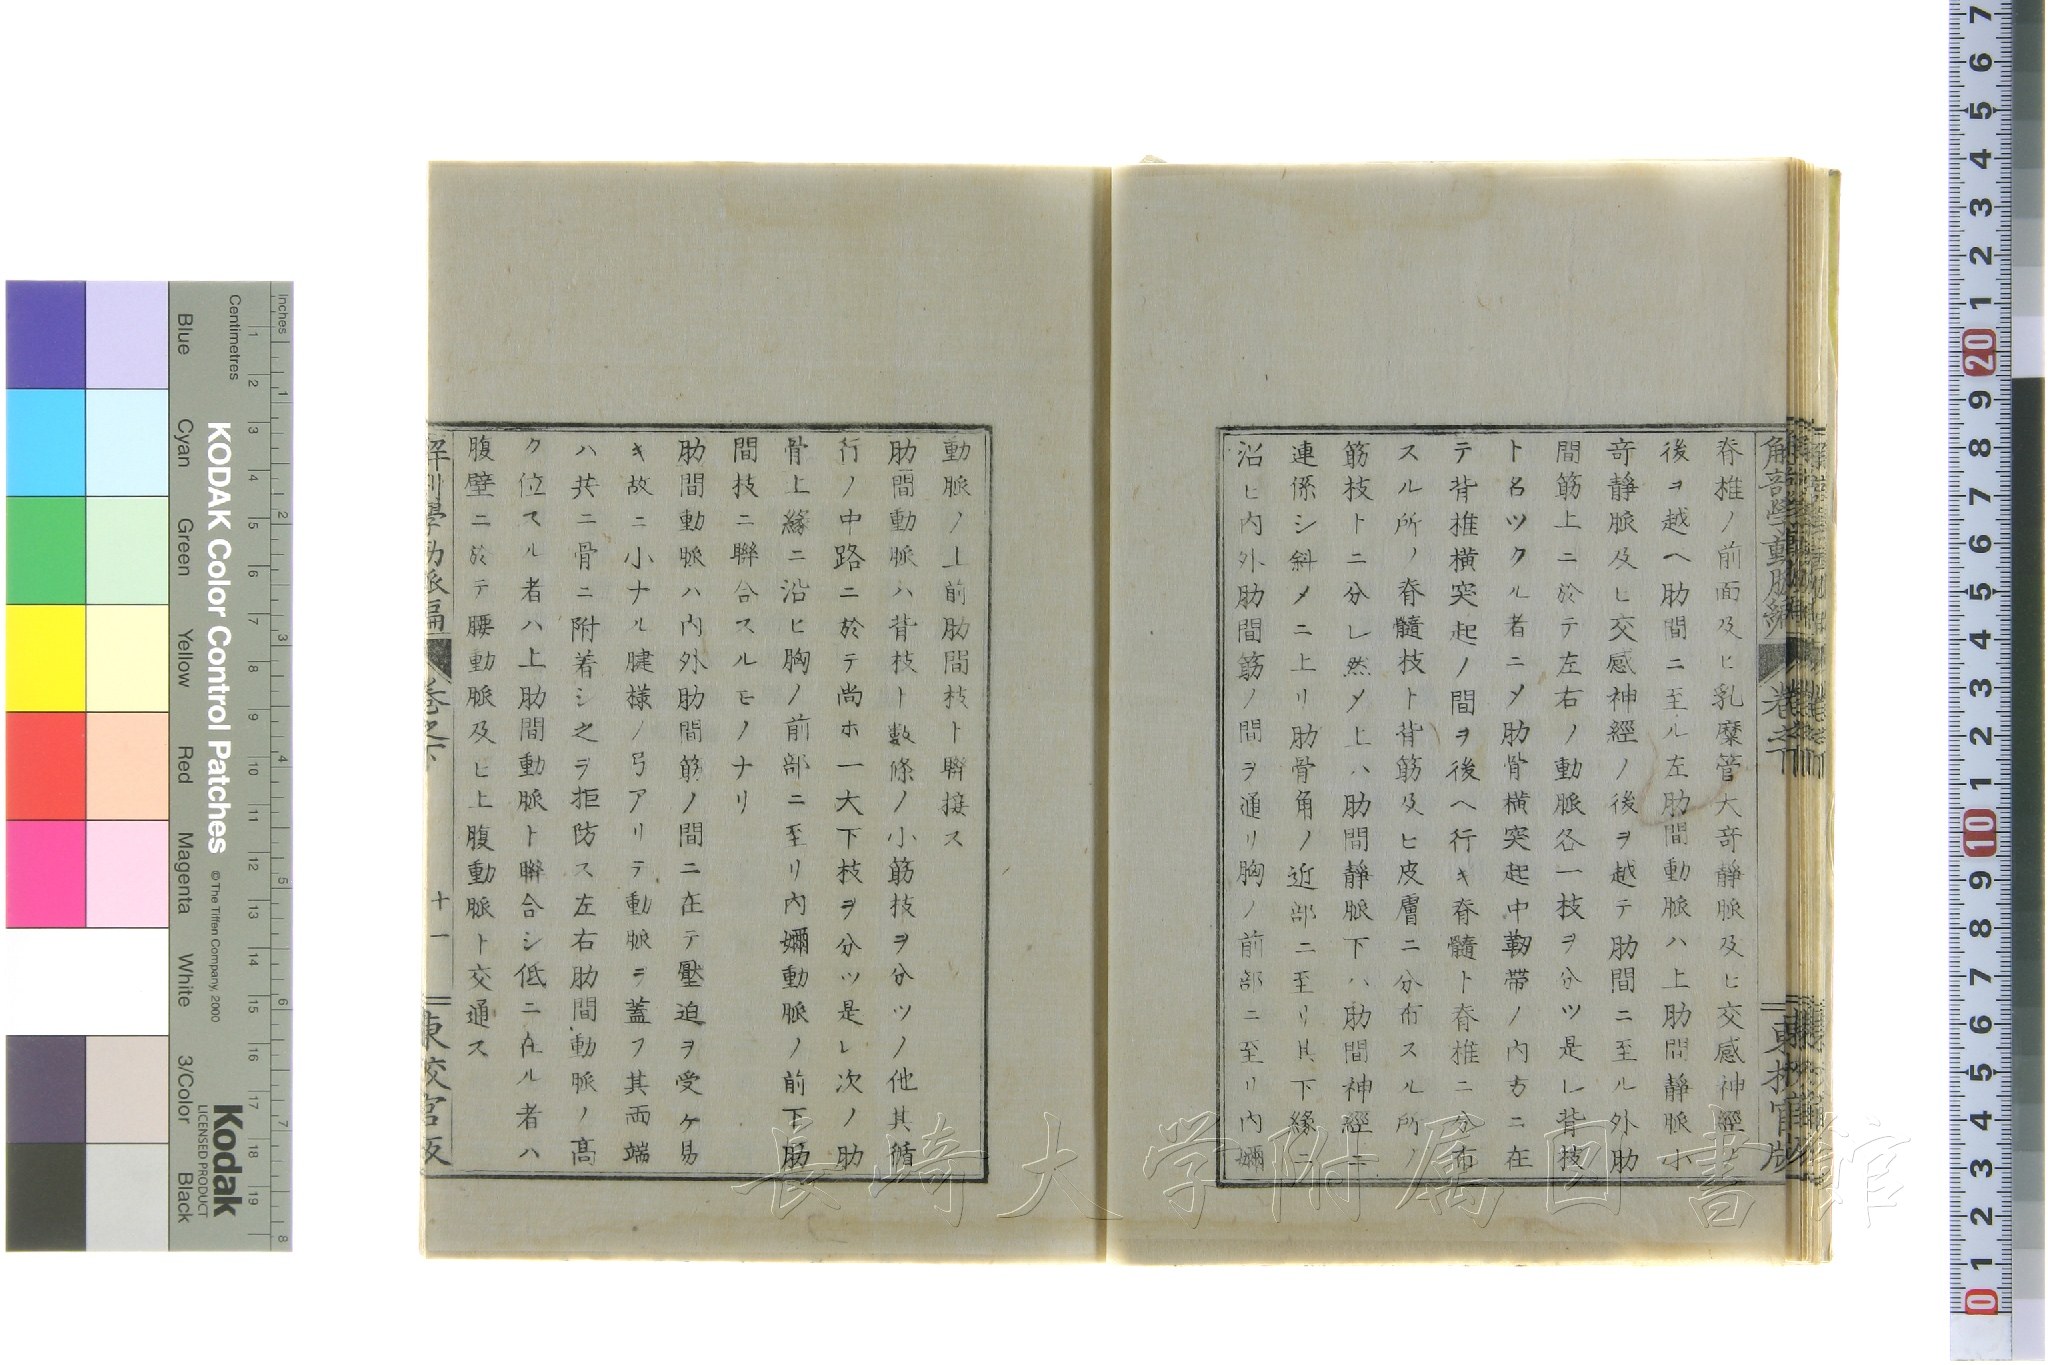 脊椎ノ前面及ヒ乳糜管大竒静脈及ヒ交感神經ノ
後ヲ越ヘ肋間ニ至ル左肋間動脈ハ上肋間静脈小
竒静脈及ヒ交感神經ノ後ヲ越テ肋間ニ至ル外肋
間筋上ニ於テ左右ノ動脈各一枝ヲ分ツ是レ背枝
ト名ツクル者ニメ肋骨横突起中靱帯ノ内方ニ在
テ背椎横突起ノ間ヲ後ヘ行キ脊髓ト脊椎ニ分布
スル所ノ脊髓枝ト背筋及ヒ皮膚ニ分布スル所ノ
筋枝トニ分レ然メ上ハ肋間静脈下ハ肋間神經ニ
連係シ斜メニ上リ肋骨角ノ近部ニ至リ其下縁ニ
沿ヒ内外肋間筋ノ間ヲ通リ胸ノ前部ニ至リ内嬭
動脈ノ上前肋間枝ト聨接ス
肋間動脈ハ背枝ト數條ノ小筋枝ヲ分ツノ他其循
行ノ中路ニ於テ尚ホ一大下枝ヲ分ツ是レ次ノ肋
骨上縁ニ沿ヒ胸ノ前部ニ至リ内嬭動脈ノ前下肋
間枝ニ聨合スルモノナリ
肋間動脈ハ内外肋間筋ノ間ニ在テ壓迫ヲ受ケ易
キ故ニ小ナル腱様ノ弓アリテ動脈ヲ蓋フ其両端
ハ共ニ骨ニ附着シ之ヲ拒防ス左右肋間動脈ノ髙
ク位スル者ハ上肋間動脈ト聨合シ低ニ在ル者ハ
腹壁ニ於テ腰動脈及ヒ上腹動脈ト交通ス
解剖學動脈編
卷之下
十一
東校官版
長崎大学附属図書館
KODAK Color Control Patches
© The Tiffen Company, 2000
Kodak
LICENSED PRODUCT
Inches
Centimetres
Blue
Cyan
Green
Yellow
Red
Magenta
White
3/Color
Black